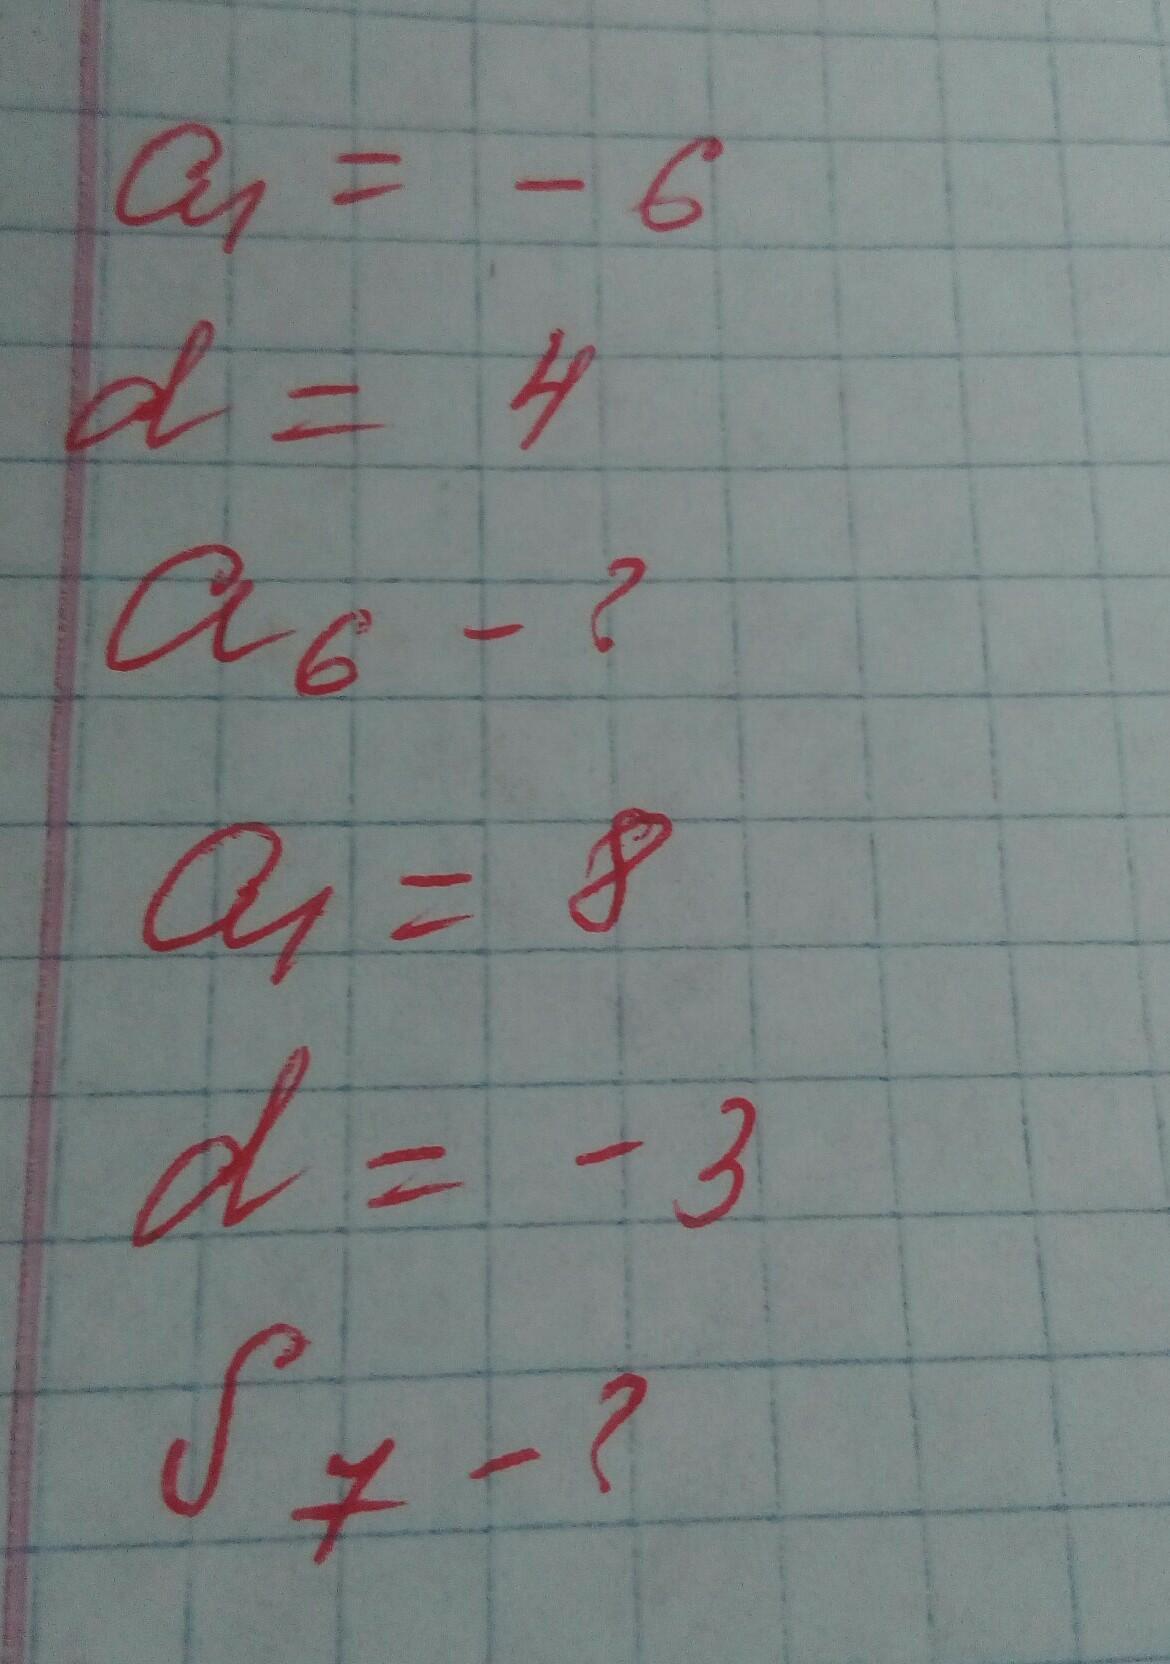 a₁ = - 6
d = 4
a₆ - ?
a₁ = 8
d = - 3
S₇ - ?